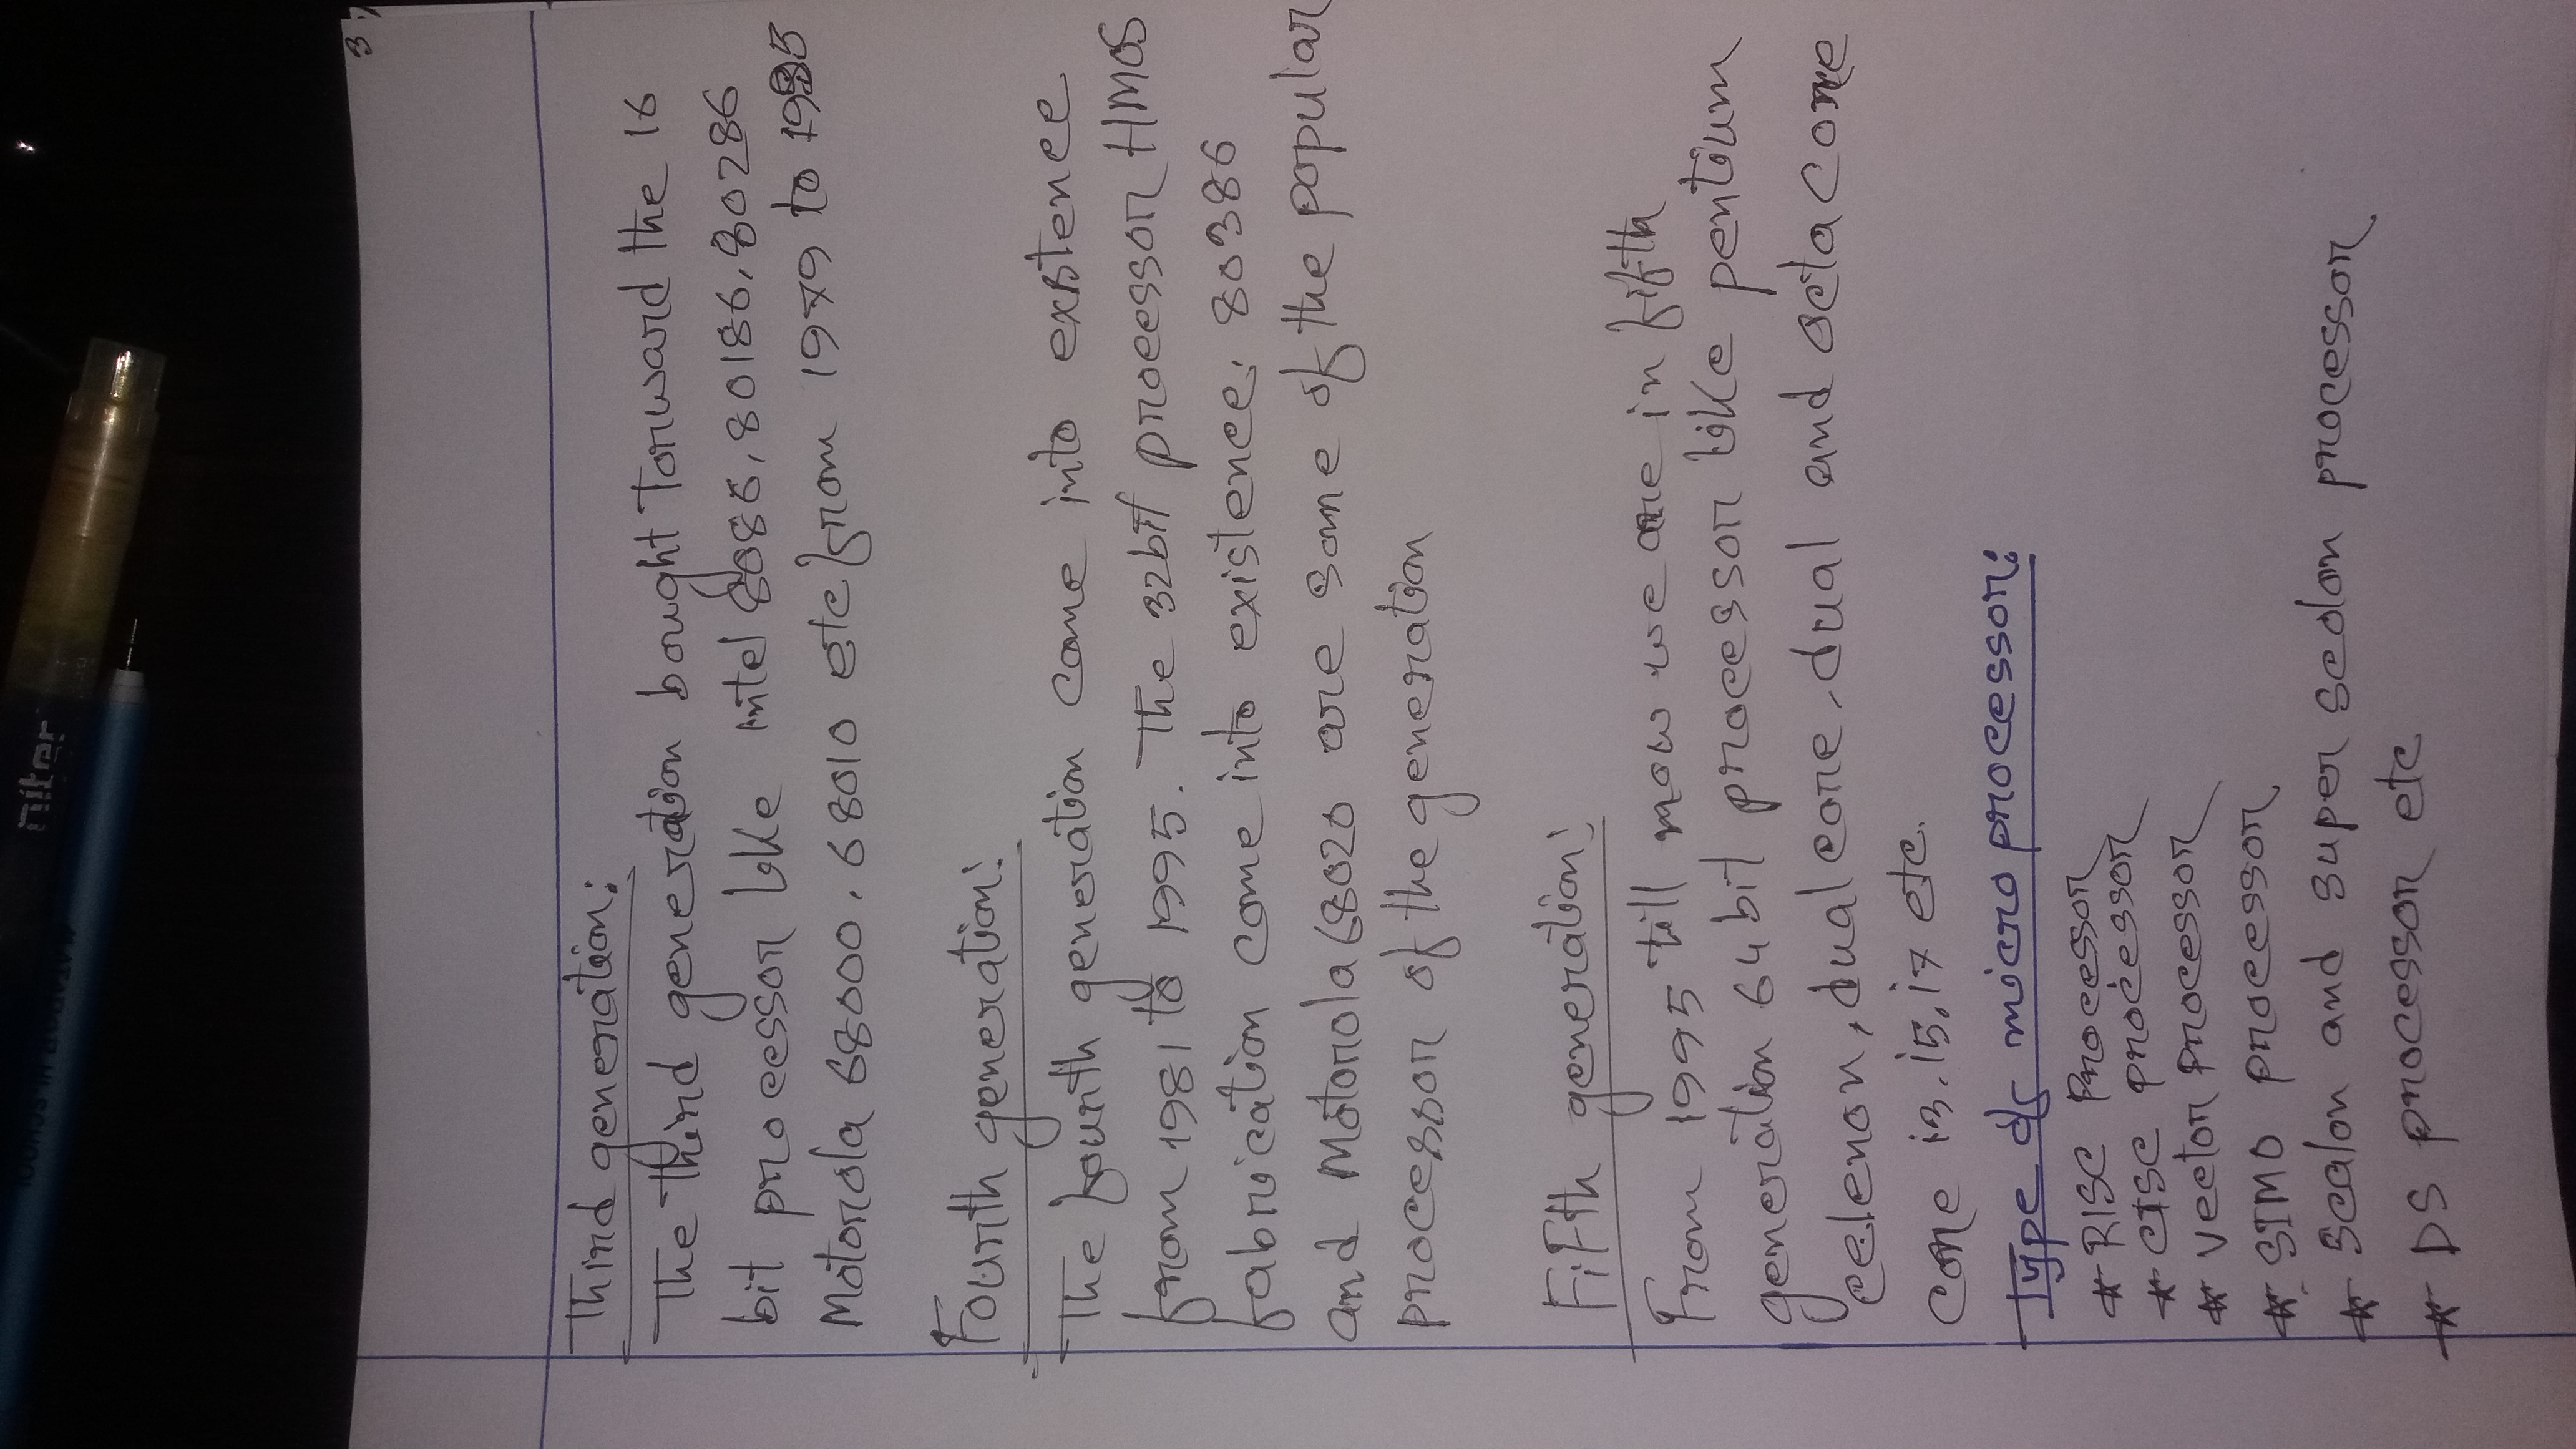 niter
3
Third generation:
The third generation bought forward the 16
bit processor like intel 8086, 80186, 80286
Motorola 68000, 68010 etc from 1979 to
Fourth generation:
The fourth generation come into existence
from 1981 to 1995. The 32bit processor HMOS
fabrication come into existence. 80386
and Motorola 68020 are some of the popular
processor of the generation
Fifth generation:
From 1995 till now we are in fifth
generation 64 bit processor like pentium
celenon, dual core, dual and octa core
core i3, i5, i7 etc.
Type of microprocessor:
* RISC Processor
* CISC processor
* Vector processor
* SIMD processor
* Scalor and super scolor processor
* DS processor etc